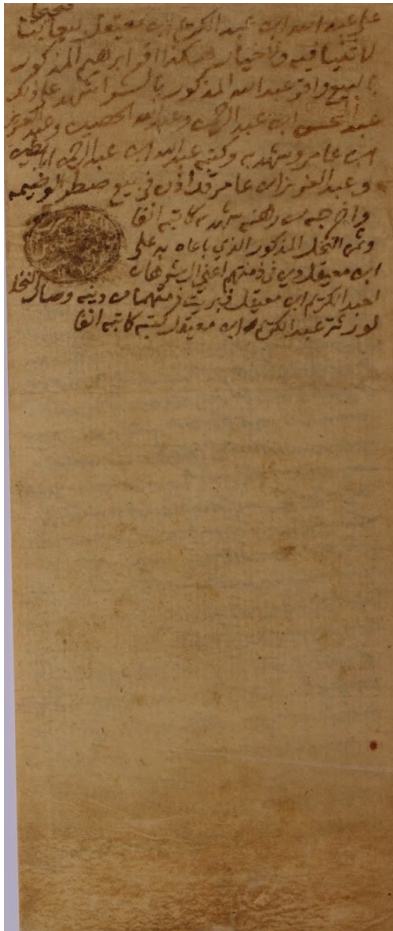 صحيحا
على عبد الله ابن عبد الكريم ابن معيقل بيعا بت
لا ثنيا فيه ولا خيار هكذا اقر ابراهيم المذكور
بالبيع واقر عبد الله المذكور بالشرا شهد على ذلك
عبد المحسن ابن عبد الرحمن وعبد الله الحصين وعبد العزيز
ابن عامر وشهد به وكتبه عبد الله ابن عبد الرحمن ابابطين
وعبد العزيز ابن عامر قد اذن في بيع
واخرجه من رهنه شهد به كاتبه انفا
وثمن النخل المذكور الذي باعاه به على
ابن معيقل دين في ذمتهم اعني ال شوهان
لعبد الكريم ابن معيقل فبريت ذمتهما من دينه وصار النخل
لورثة عبد الكريم ابن معيقل كتبه كاتبه انفا